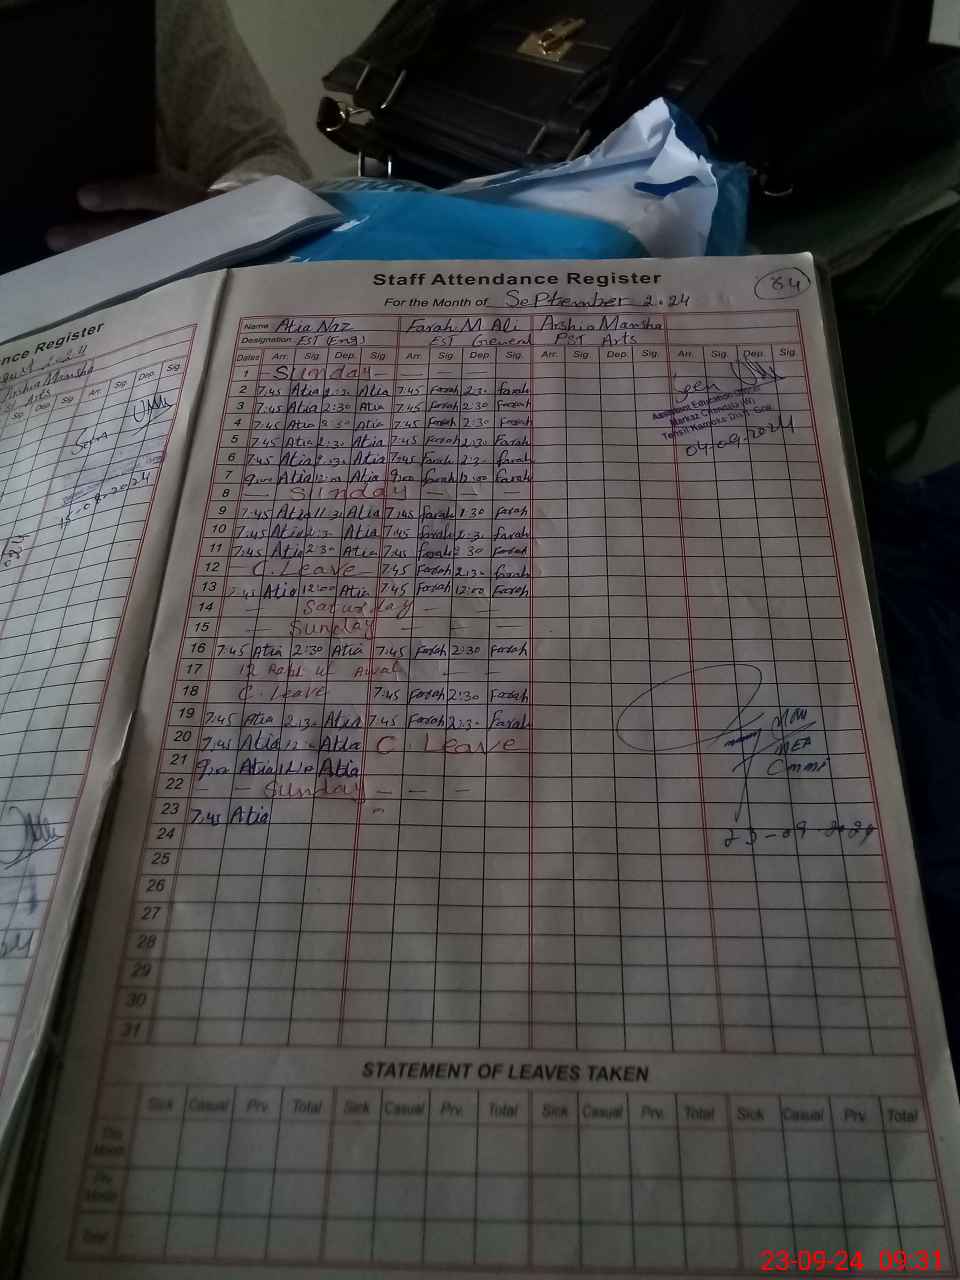 Staff Attendance Register
64
For the Month of September 2024
Name Atia Naz Farah M Ali Arshia Mansha
Designation EST (Eng) EST General PST Arts
Dates Arr. Sig. Dep. Sig. Arr. Sig. Dep. Sig. Arr. Sig. Dep. Sig. Arr. Sig. Dep. Sig.
1 — Sunday — — — —
2 7:45 Atia 2:30 Atia 7:45 Farah 2:30 Farah
3 7:45 Atia 2:30 Atia 7:45 Farah 2:30 Farah
4 7:45 Atia 2:30 Atia 7:45 Farah 2:30 Farah
5 7:45 Atia 2:30 Atia 7:45 Farah 2:30 Farah
6 7:45 Atia Atia 7:45 Farah 2:30 Farah
7 9:00 Atia 12:00 Atia 9:00 Farah 12:00 Farah
8 — Sunday — —
9 7:45 Atia 1:30 Atia 7:45 Farah 1:30 Farah
10 7:45 Atia Atia 7:45 Farah Farah
11 7:45 Atia 2:30 Atia 7:45 Farah 2:30 Farah
12 — C.Leave — 7:45 Farah 2:30 Farah
13 7:45 Atia 12:00 Atia 7:45 Farah 12:00 Farah
14 — Saturday — —
15 — Sunday — — —
16 7:45 Atia 2:30 Atia 7:45 Farah 2:30 Farah
17 12 Rabi ul Awal — —
18 C. Leave 7:45 Farah 2:30 Farah
19 7:45 Atia 2:30 Atia 7:45 Farah 2:30 Farah
20 7:45 Atia Atia C. Leave
21 9:00 Atia Atia
22 — — Sunday — — —
23 7:45 Atia
24
25
26
27
28
29
30
31
Seen
Assistant Education Officer
Tehsil Kamoke Distt: Grw
04-09-2024
MEA
23-09-2024
STATEMENT OF LEAVES TAKEN
Sick Casual Prv. Total Sick Casual Prv. Total Sick Casual Prv. Total Sick Casual Prv. Total
Total
nce Register
gust 2024
Arshia Mansha
Arts
Sig. Dep. Sig. Arr. Sig. Dep. Sig.
Seen
15-08-2024
23-09-24 09:31